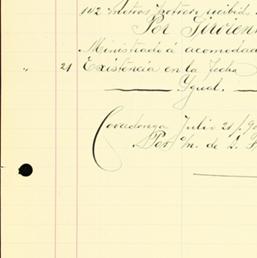 102 metros potrero recibid
Por Sirvien
Ministradi á acomodad
" 21 Existencia en la fecha
Ygual.
Covadonga Julio 21/90
Per m. de L.